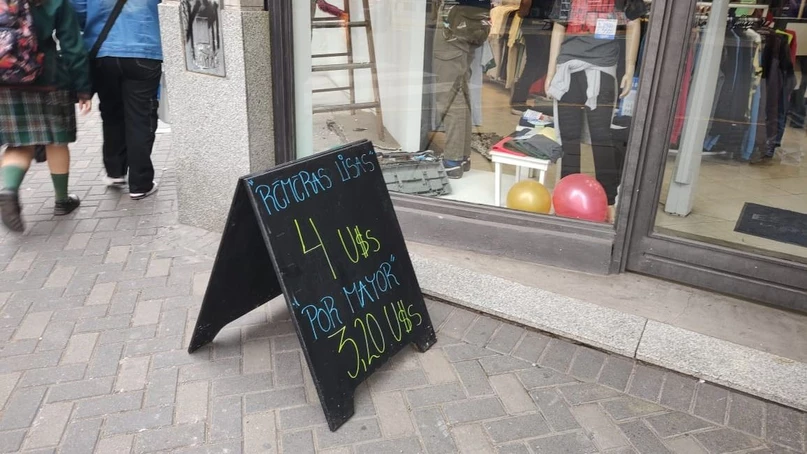 "REMERAS LISAS"
4 U$S
"POR MAYOR"
3,20 U$S